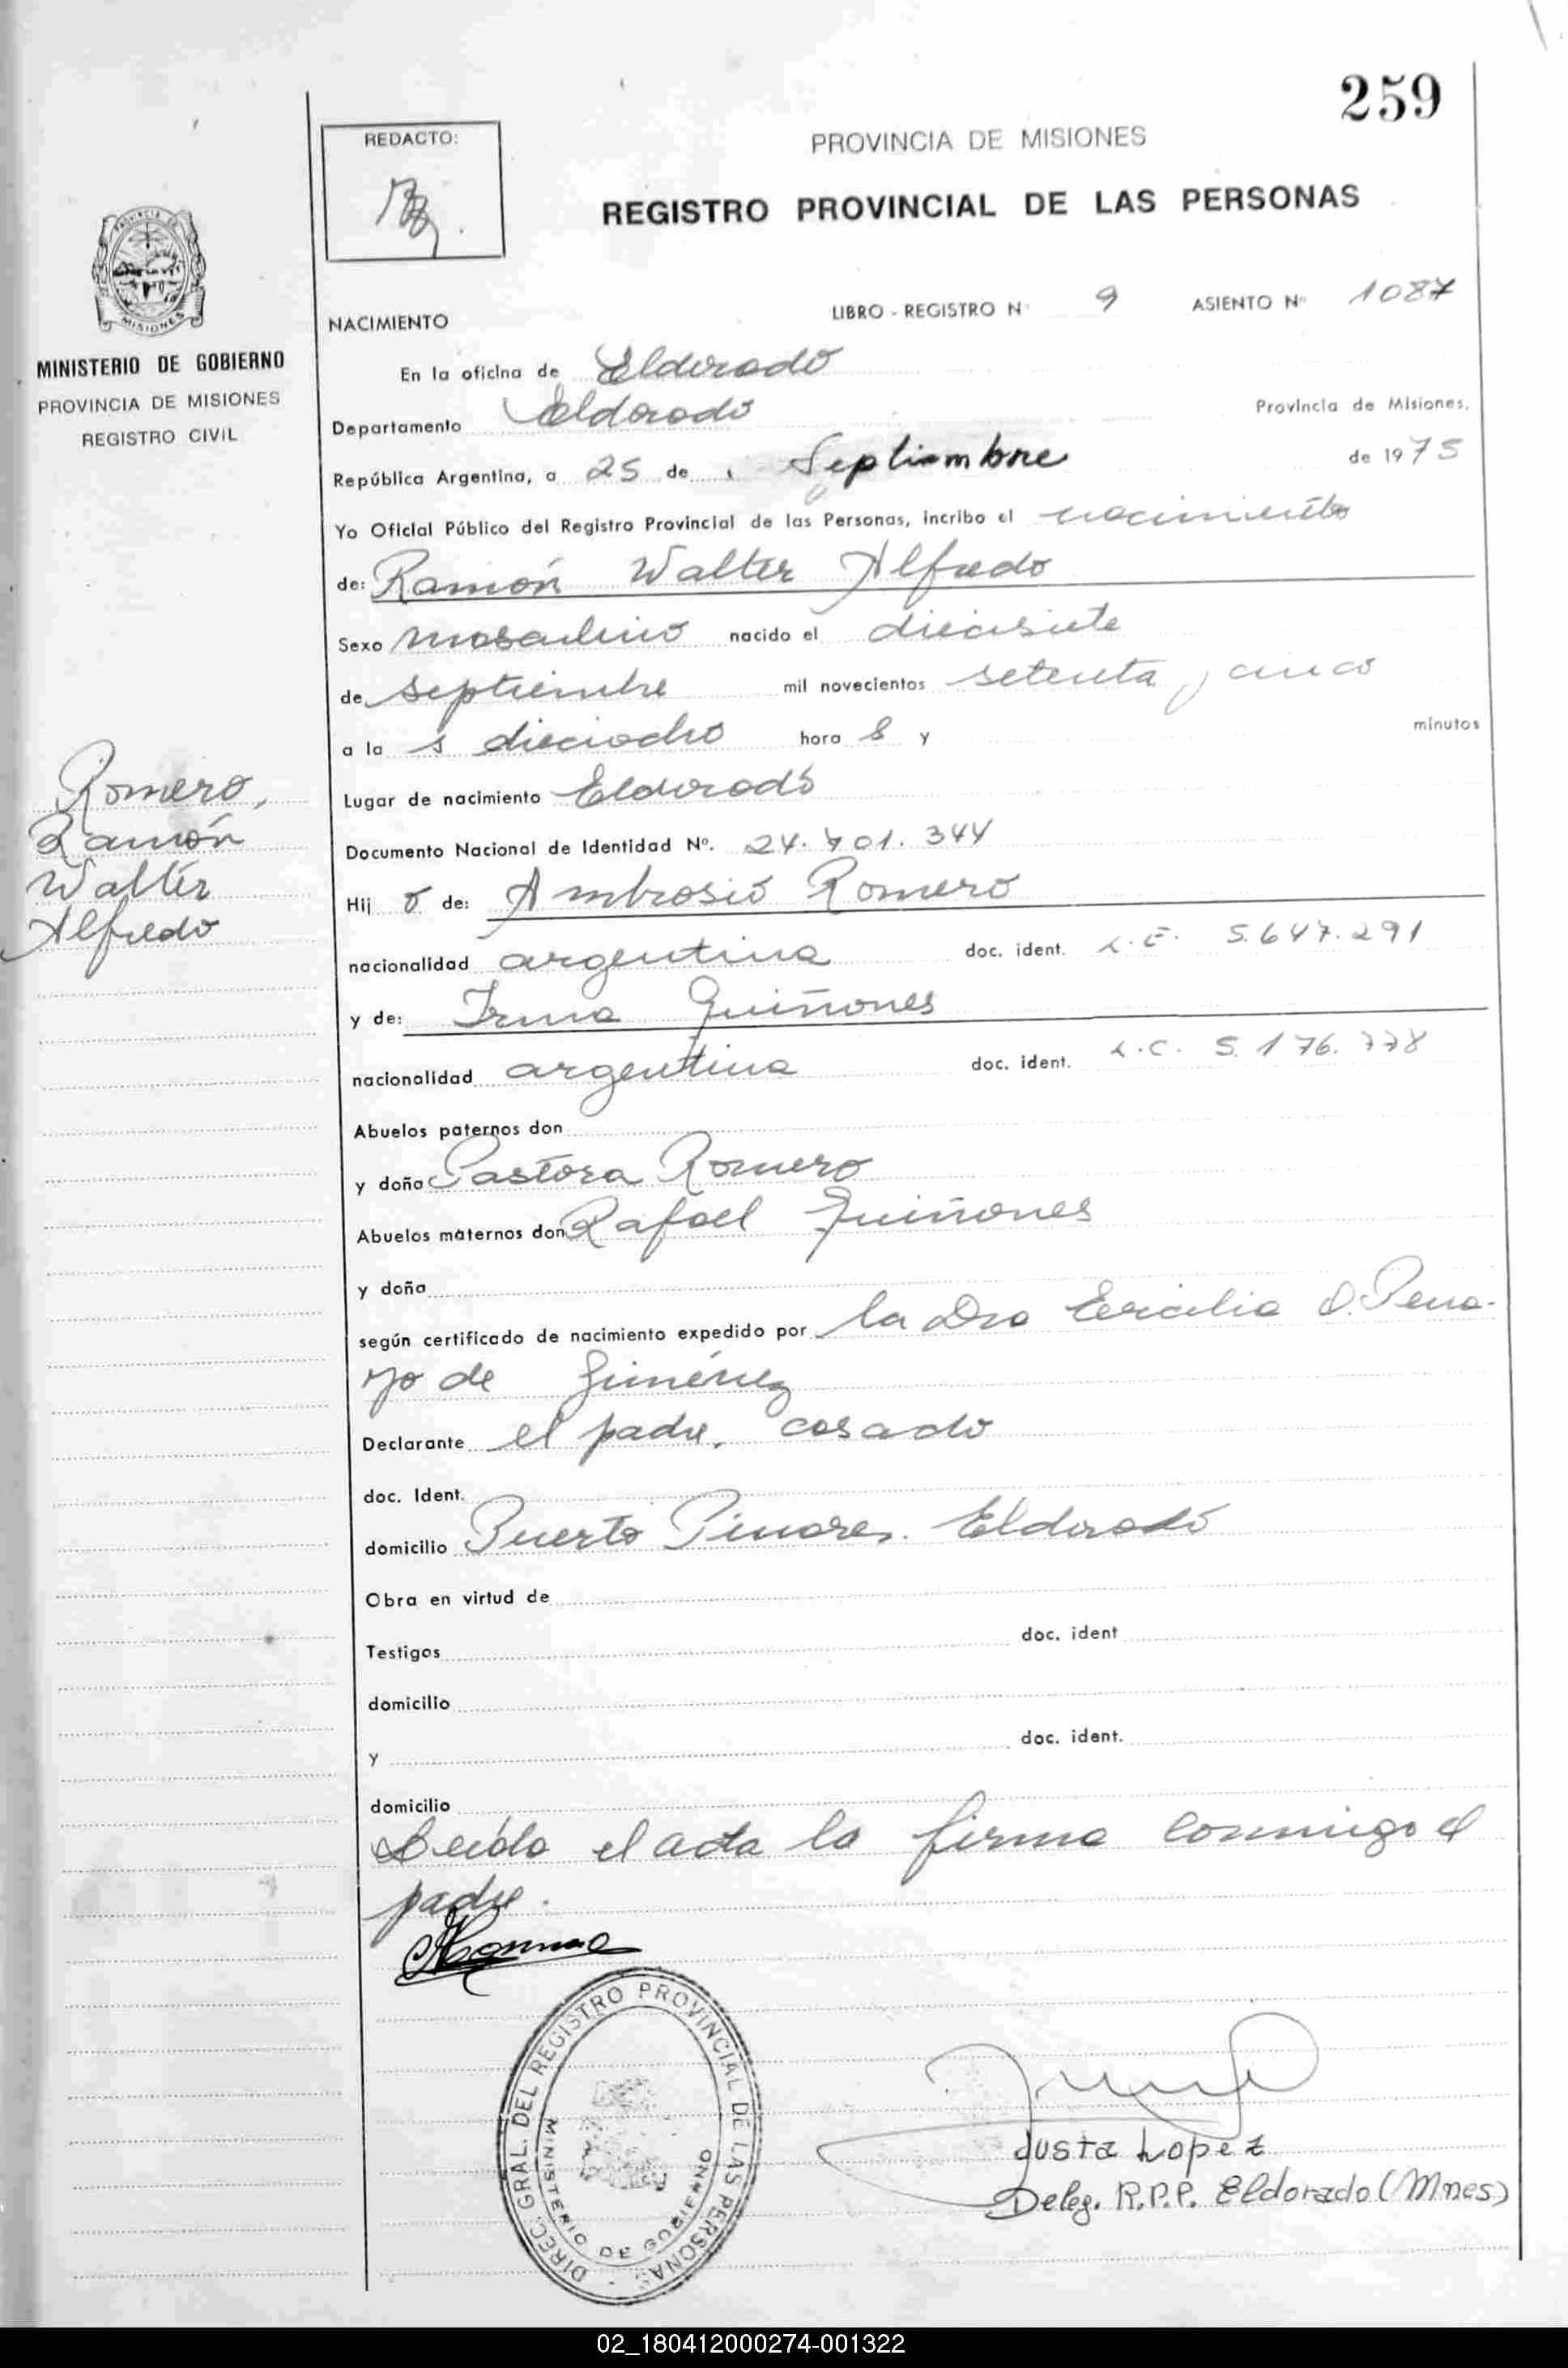 259
REDACTO:
PROVINCIA DE MISIONES
REGISTRO PROVINCIAL DE LAS PERSONAS
MISIONES
MINISTERIO DE GOBIERNO
PROVINCIA DE MISIONES
REGISTRO CIVIL
NACIMIENTO
LIBRO - REGISTRO Nº 9 ASIENTO Nº 1087
En la oficina de Eldorado
Departamento Eldorado Provincia de Misiones,
República Argentina, a 25 de Septiembre de 1975
Yo Oficial Público del Registro Provincial de las Personas, incribo el nacimiento
de: Ramón Walter Alfredo
Sexo masculino nacido el diecisiete
de septiembre mil novecientos setenta y cinco
a la s dieciocho hora s y minutos
Romero,
Ramón
Walter
Alfredo
Lugar de nacimiento Eldorado
Documento Nacional de Identidad Nº. 24.701.344
Hij o de: Ambrosio Romero
nacionalidad argentina doc. ident. L.E. 5.647.291
y de: Irma Quiñones
nacionalidad argentina doc. ident. L.C. 5.176.778
Abuelos paternos don
y doña Pastora Romero
Abuelos maternos don Rafael Quiñones
y doña
según certificado de nacimiento expedido por la Dra Ercilia
de Giménez
Declarante el padre, casado
doc. Ident.
domicilio Puerto Pinares. Eldorado
Obra en virtud de
Testigos doc. ident
domicilio
y doc. ident.
domicilio
Leída el acta la firma conmigo el
padre.
DIREC. GRAL. DEL REGISTRO PROVINCIAL DE LAS PERSONAS
MINISTERIO DE GOBIERNO
Justa Lopez
Deleg. R.P.P. Eldorado (Mnes)
02_180412000274-001322